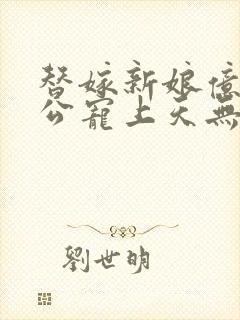 替嫁新娘億
公寵上天無
劉世明